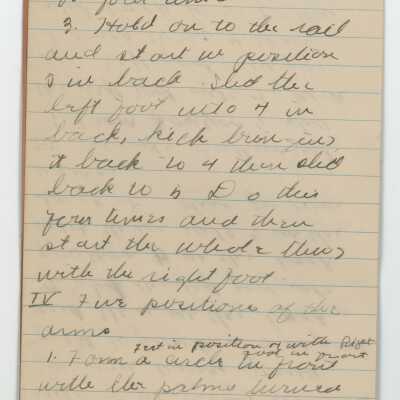 3. Hold on to the rail
and start in position
5 in back slid the
left foot into 4 in
back, kick bringing
it back to 4 then slid
back to 5 Do this
four times and then
start the whole thing
with the right foot.
IV Five positions of the
arms
Feet in position 4 with Right
foot in front
1. Form a circle in front
with the palms turned